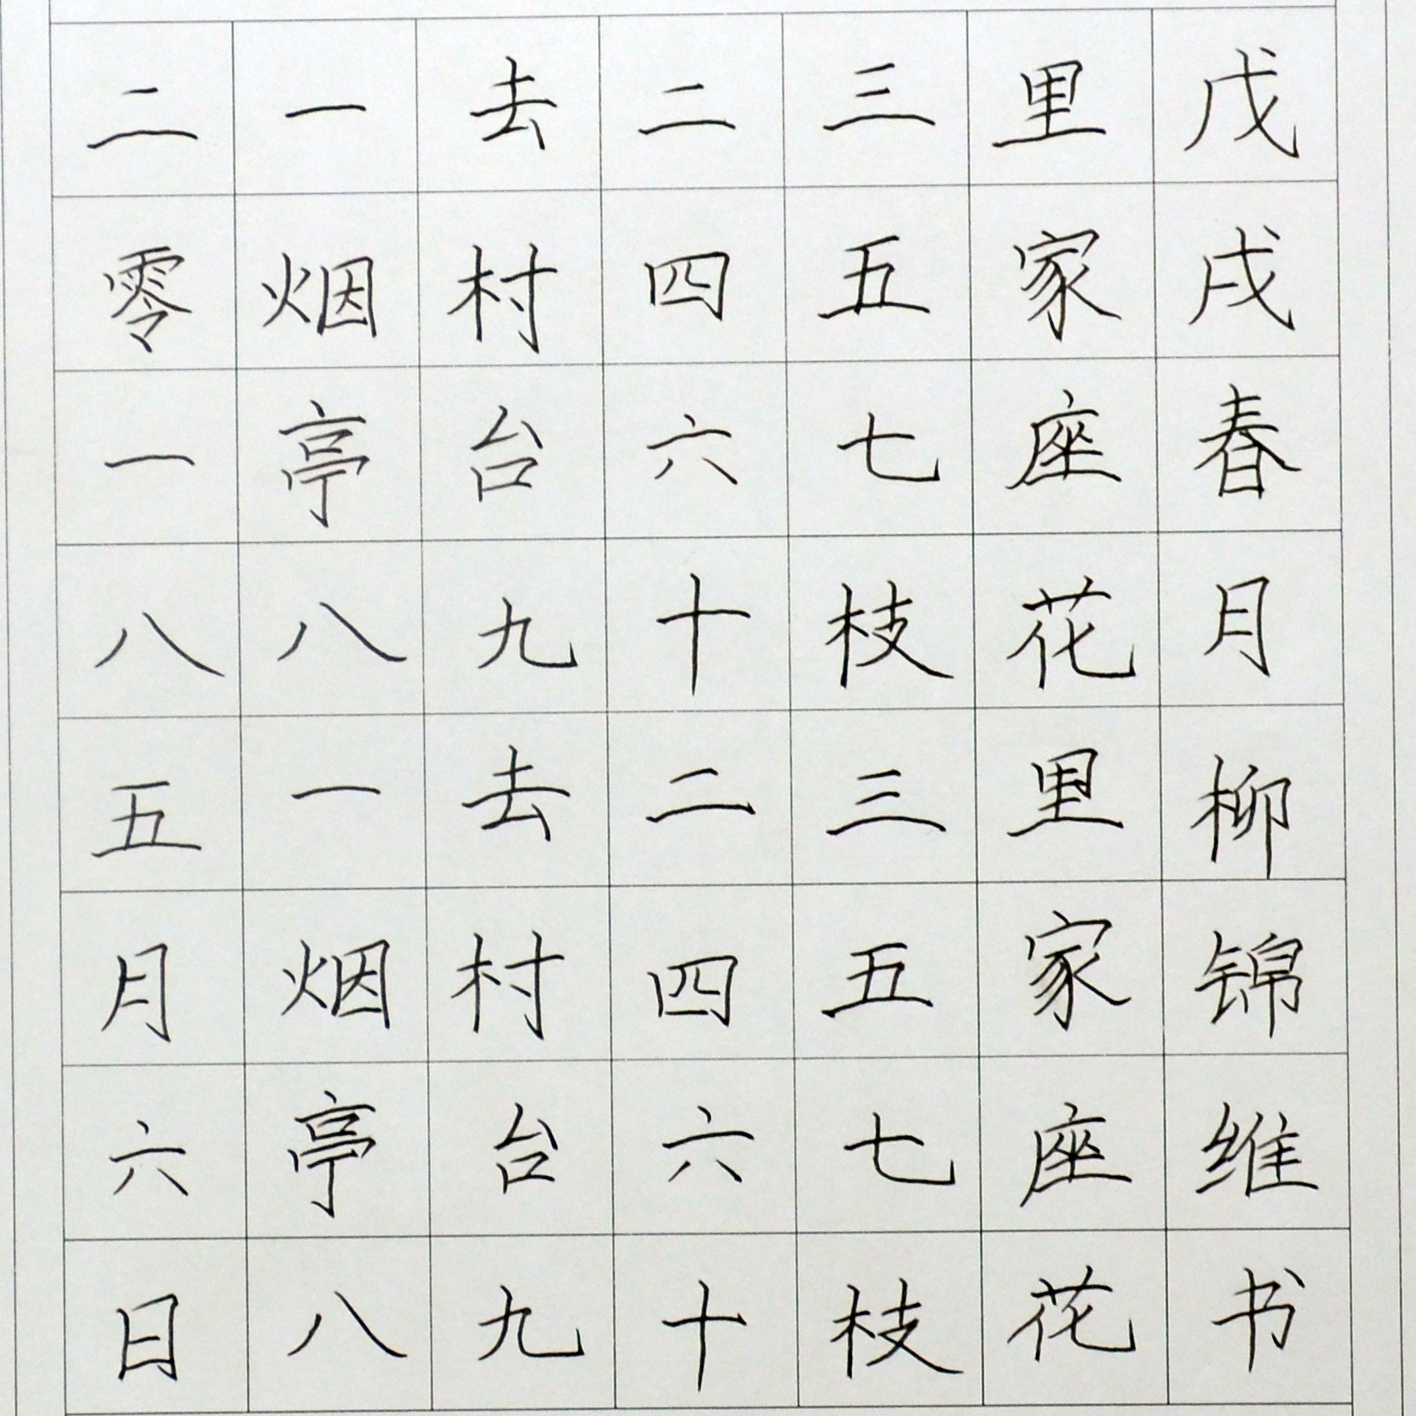 二零一八五月六日
一去二三里
烟村四五家
亭台六七座
八九十枝花
一去二三里
烟村四五家
亭台六七座
八九十枝花
戊戌春月柳锦维书